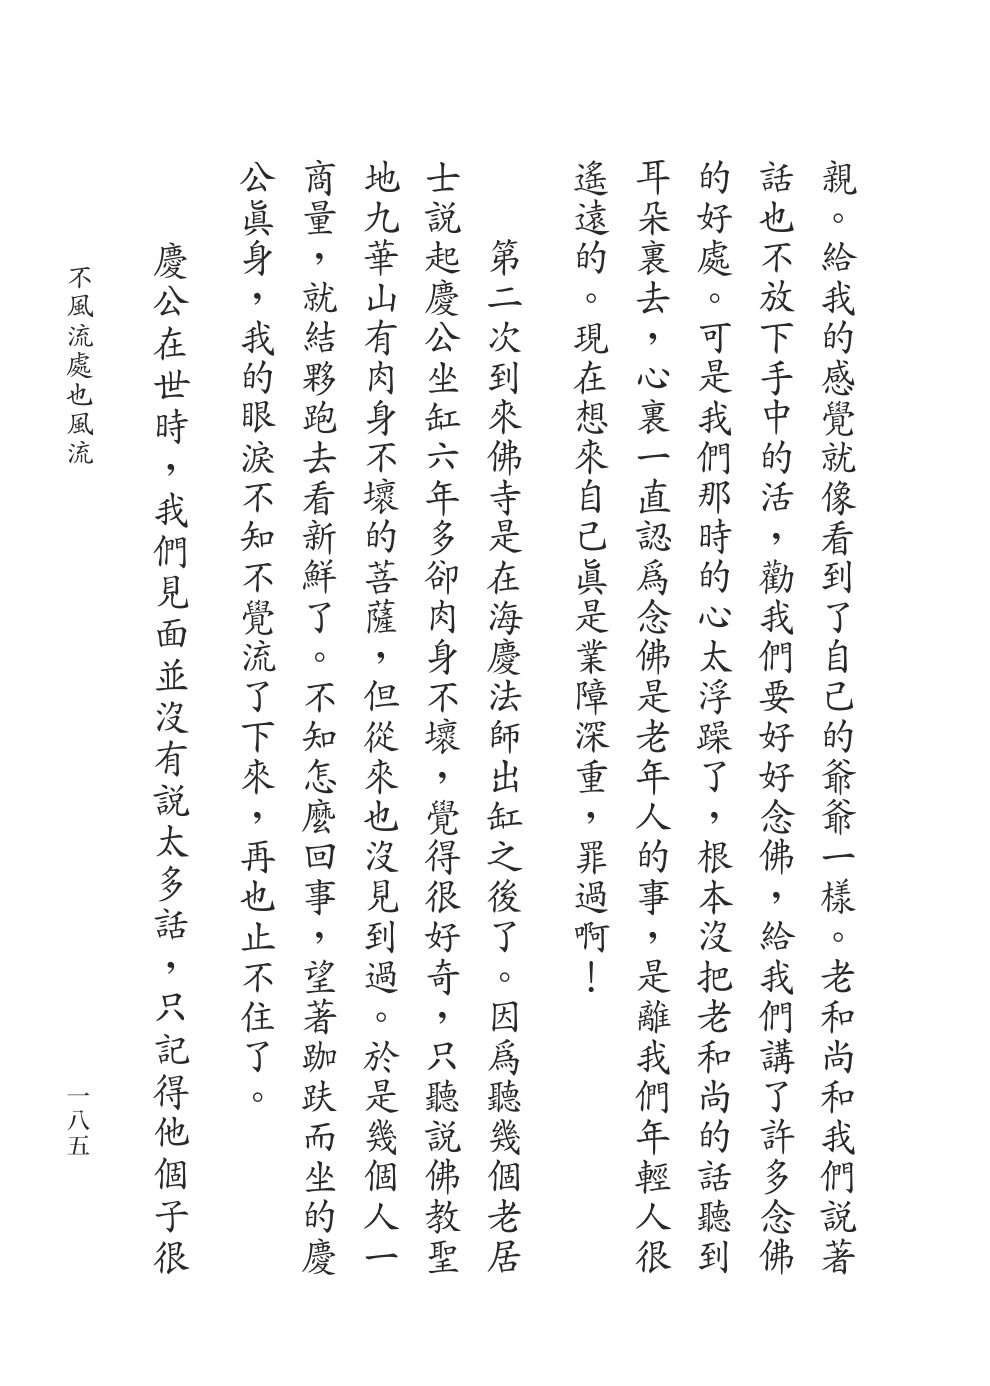 親。給我的感覺就像看到了自己的爺爺一樣。老和尚和我們説著
話也不放下手中的活，勸我們要好好念佛，給我們講了許多念佛
的好處。可是我們那時的心太浮躁了，根本沒把老和尚的話聽到
耳朵裏去，心裏一直認爲念佛是老年人的事，是離我們年輕人很
遙遠的。現在想來自己眞是業障深重，罪過啊！
第二次到來佛寺是在海慶法師出缸之後了。因爲聽幾個老居
士説起慶公坐缸六年多卻肉身不壞，覺得很好奇，只聽説佛教聖
地九華山有肉身不壞的菩薩，但從來也沒見到過。於是幾個人一
商量，就結夥跑去看新鮮了。不知怎麼回事，望著跏趺而坐的慶
公眞身，我的眼淚不知不覺流了下來，再也止不住了。
慶公在世時，我們見面並沒有説太多話，只記得他個子很
不風流處也風流
一八五